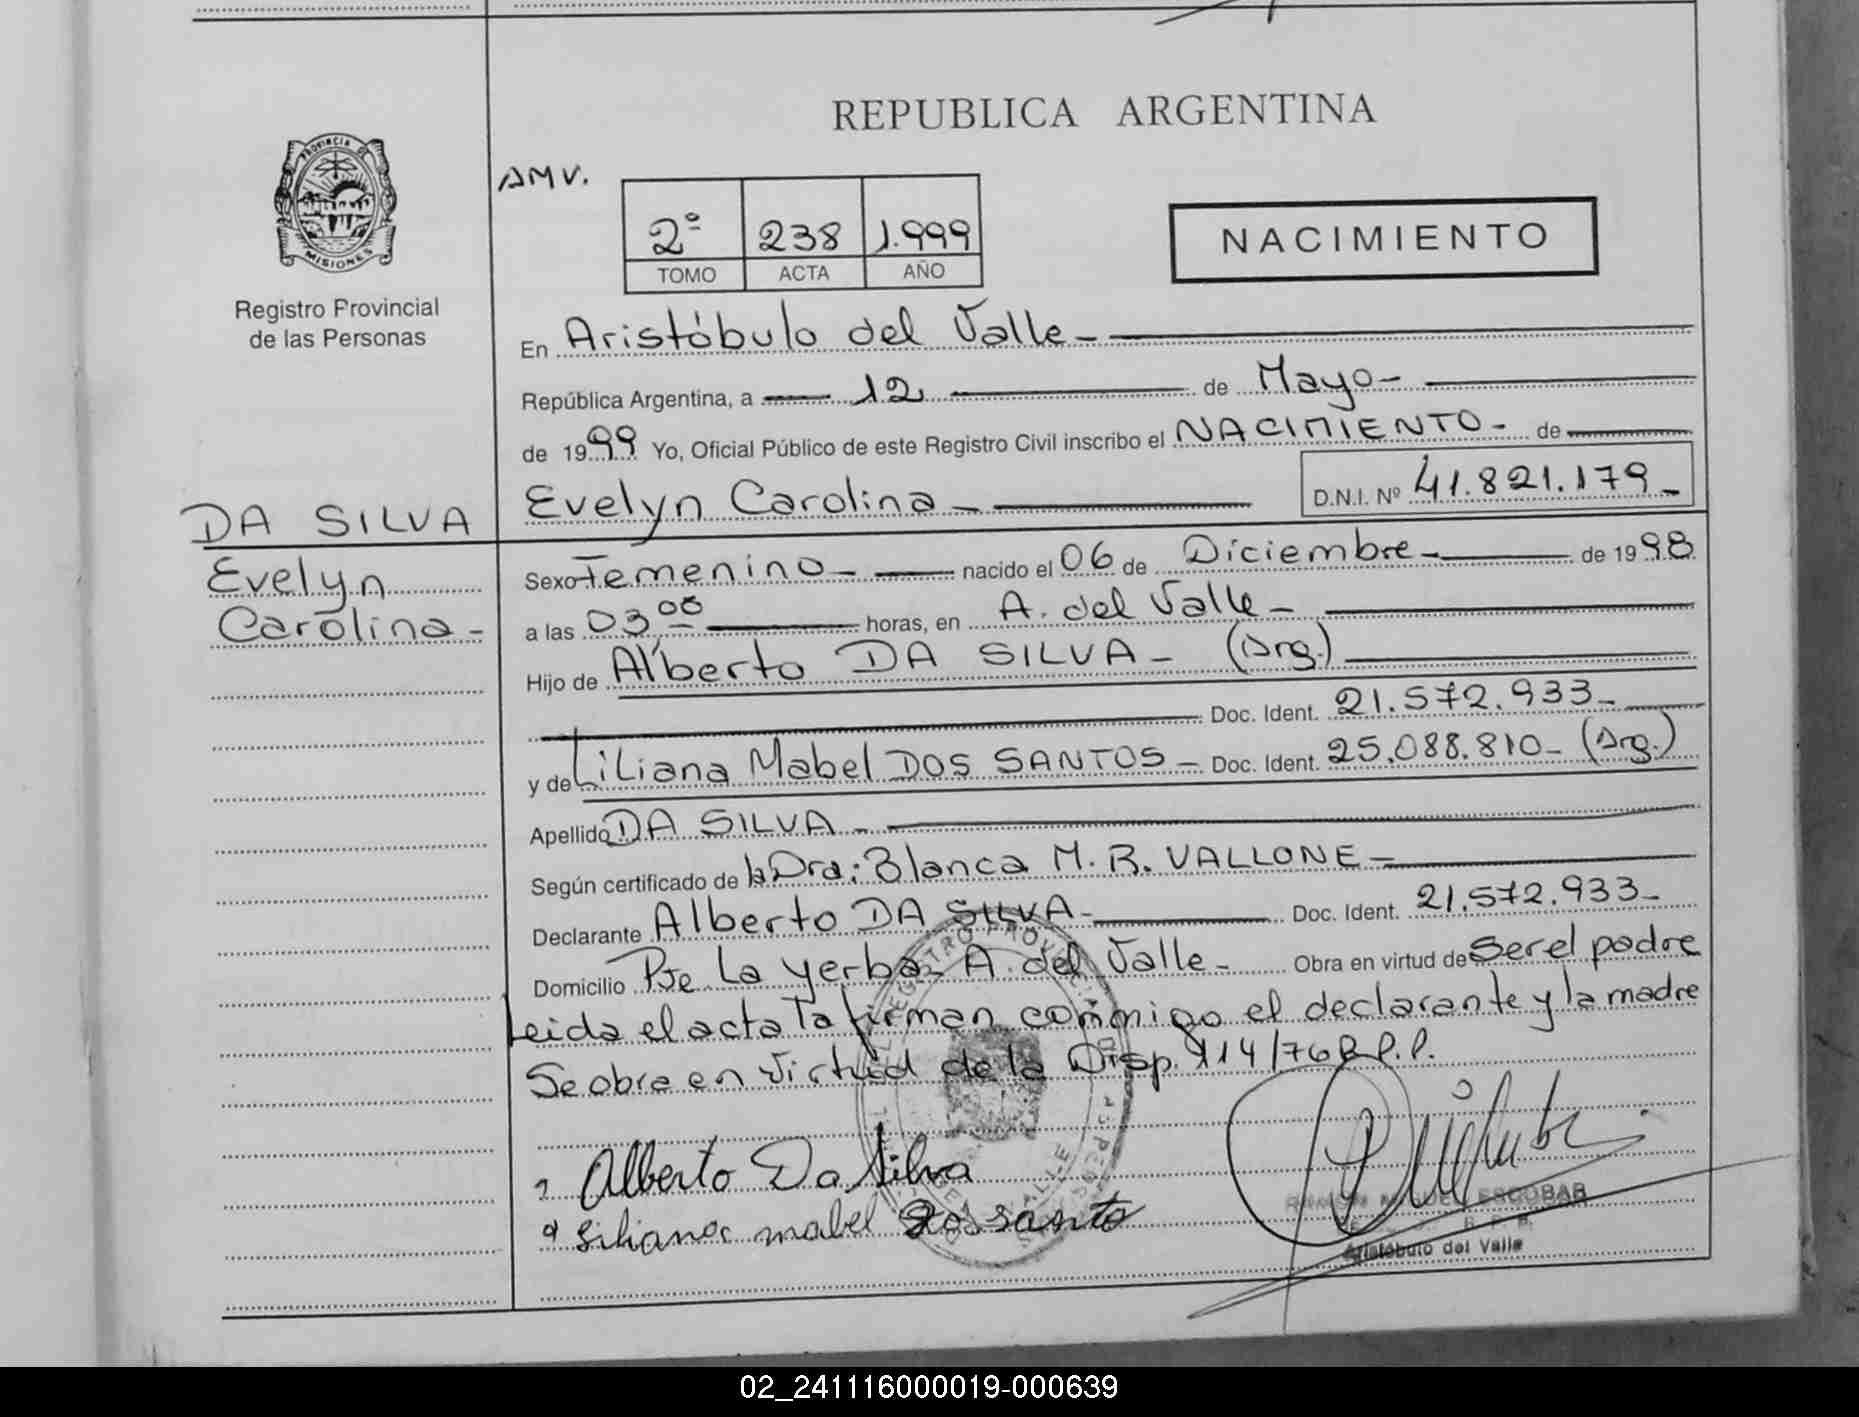 REPUBLICA ARGENTINA
AMV.
PROVINCIA DE
MISIONES
Registro Provincial
de las Personas
2º 238 1.999
TOMO ACTA AÑO
NACIMIENTO
En Aristóbulo del Valle-
República Argentina, a 12 de Mayo-
de 1999 Yo, Oficial Público de este Registro Civil inscribo el NACIMIENTO- de
Evelyn Carolina- D.N.I. Nº 41.821.179-
DA SILVA
Evelyn
Carolina-
Sexo Femenino- nacido el 06 de Diciembre- de 1998
a las 03,00 horas, en A. del Valle-
Hijo de Alberto DA SILVA- (Arg.)
Doc. Ident. 21.572.933-
y de Liliana Mabel DOS SANTOS- Doc. Ident. 25.088.810- (Arg.)
Apellido DA SILVA-
Según certificado de la Dra: Blanca M. R. VALLONE-
Declarante Alberto DA SILVA- Doc. Ident. 21.572.933-
Domicilio Pje La yerba- A. del Valle- Obra en virtud de ser el padre
Leida el acta la firman conmigo el declarante y la madre
Se obra en virtud de la Disp. 114/76 R.P.P.
Alberto Da Silva
Liliana mabel Dos santo
MIGUEL ESCOBAR
Aristóbulo del Valle
02_241116000019-000639